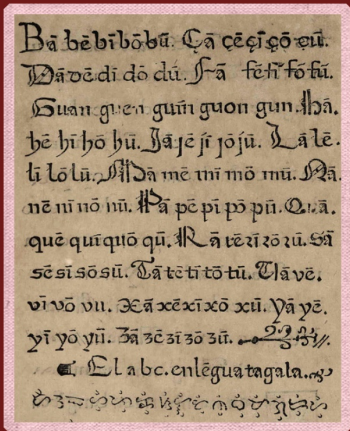 Bā bē bī bō bū. Çā çē çī çō çū.
Dā dē dī dō dū. Fā fē fī fō fū.
Guan guen guin guon gun. Hā.
hē hī hō hū. Jā jē jī jō jū. Lā lē.
lī lō lū. Mā mē mī mō mū. Nā.
nē nī nō nū. Pā pē pī pō pū. Quā.
quē quī quō qū. Rā rē rī rō rū. sā
sē sī sō sū. Tā tē tī tō tū. Uā vē.
vī vō vu. Xā xē xī xō xū. Yā yē.
yī yō yū. Zā zē zī zō zū.
El abc. en lēgua tagala.